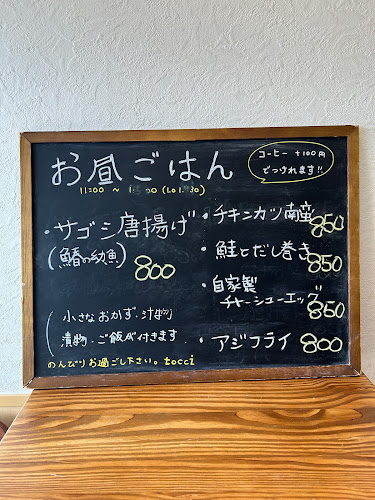 お昼ごはん
コーヒー +100円
でつけれます!!
11:00 ~ (Lo 1:30)
・サゴシ唐揚げ
(鰆の幼魚) 800
小さなおかず・汁物
漬物・ご飯が付きます
・チキンカツ南蛮 850
・鮭とだし巻き 850
・自家製
チャーシューエッグ 850
・アジフライ 800
のんびりお過ごし下さい。tocci